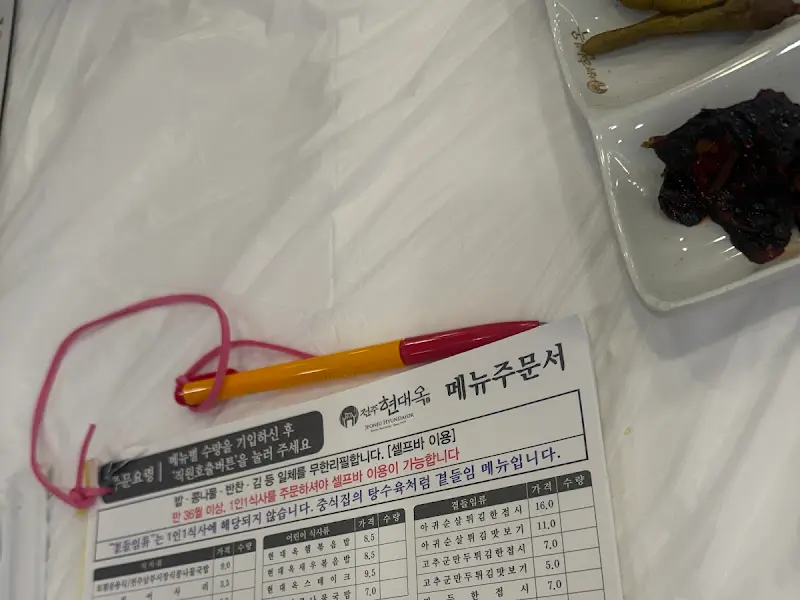 전주현대옥
JEONJU HYUNDAIOK
메뉴주문서
주문요령
메뉴별 수량을 기입하신 후
'직원호출버튼'을 눌러 주세요
밥 · 콩나물 · 반찬 · 김 등 일체를 무한리필합니다. [셀프바 이용]
만 36월 이상, 1인1식사를 주문하셔야 셀프바 이용이 가능합니다
"곁들임류"는 1인1식사에 해당되지 않습니다. 중식집의 탕수육처럼 곁들임 메뉴입니다.
가격 수량
어린이 식사류 가격 수량
현대옥햄볶음밥 8.5
현대옥새우볶음밥 8.5
현대옥스테이크 9.5
7.0
곁들임류 가격 수량
아귀순살튀김한접시 16.0
아귀순살튀김맛보기 11.0
고추군만두튀김한접시 7.0
고추군만두튀김맛보기 5.0
한접시 7.0